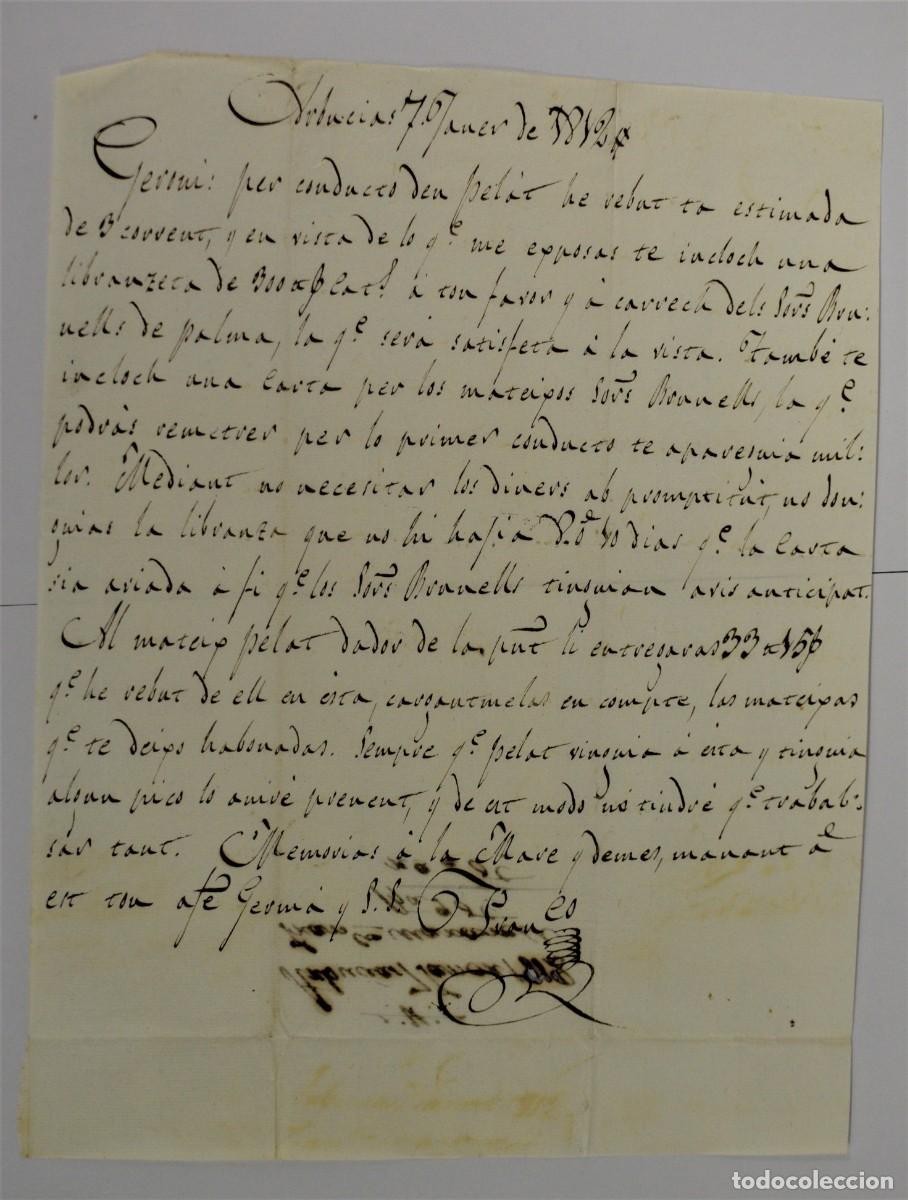 Arbucias 7 Janer de 1812
Geroni: per conducto den Pelat he rebut ta estimada
de 3 corrent, y en vista de lo q.e me exposas te incloch una
libranzeta de 300 Cat.s á ton favor y á carrech dels Sors Bru:
nells de palma, la q.e será satisfeta á la vista. També te
incloch una Carta per los mateixos Sors Brunells, la q.e
podrás remetrer per lo primer conducto te aparesquia mil:
lor. Mediant no necesitar los diners ab promptitút, no don:
guias la libranza que no hi hajia 8. ó 10 dias q.e la Carta
sia aviada á fi q.e los Sors Brunells tinguian avis anticipat.
Al mateix Pelat dador de la pnt li entregaras 33 15
q.e he rebut de ell en ésta, cargantmelas en compte, las mateixas
q.e te deixo habonadas. Sempre q.e Pelat vinguia á esta y tinguia
algun pico lo aniré prenent, y de est modo no tindré q.e trabal:
sar tant. Memorias á la Mare y demes, manant á
est ton afe Germá y S.S. Fran.co
todocoleccion